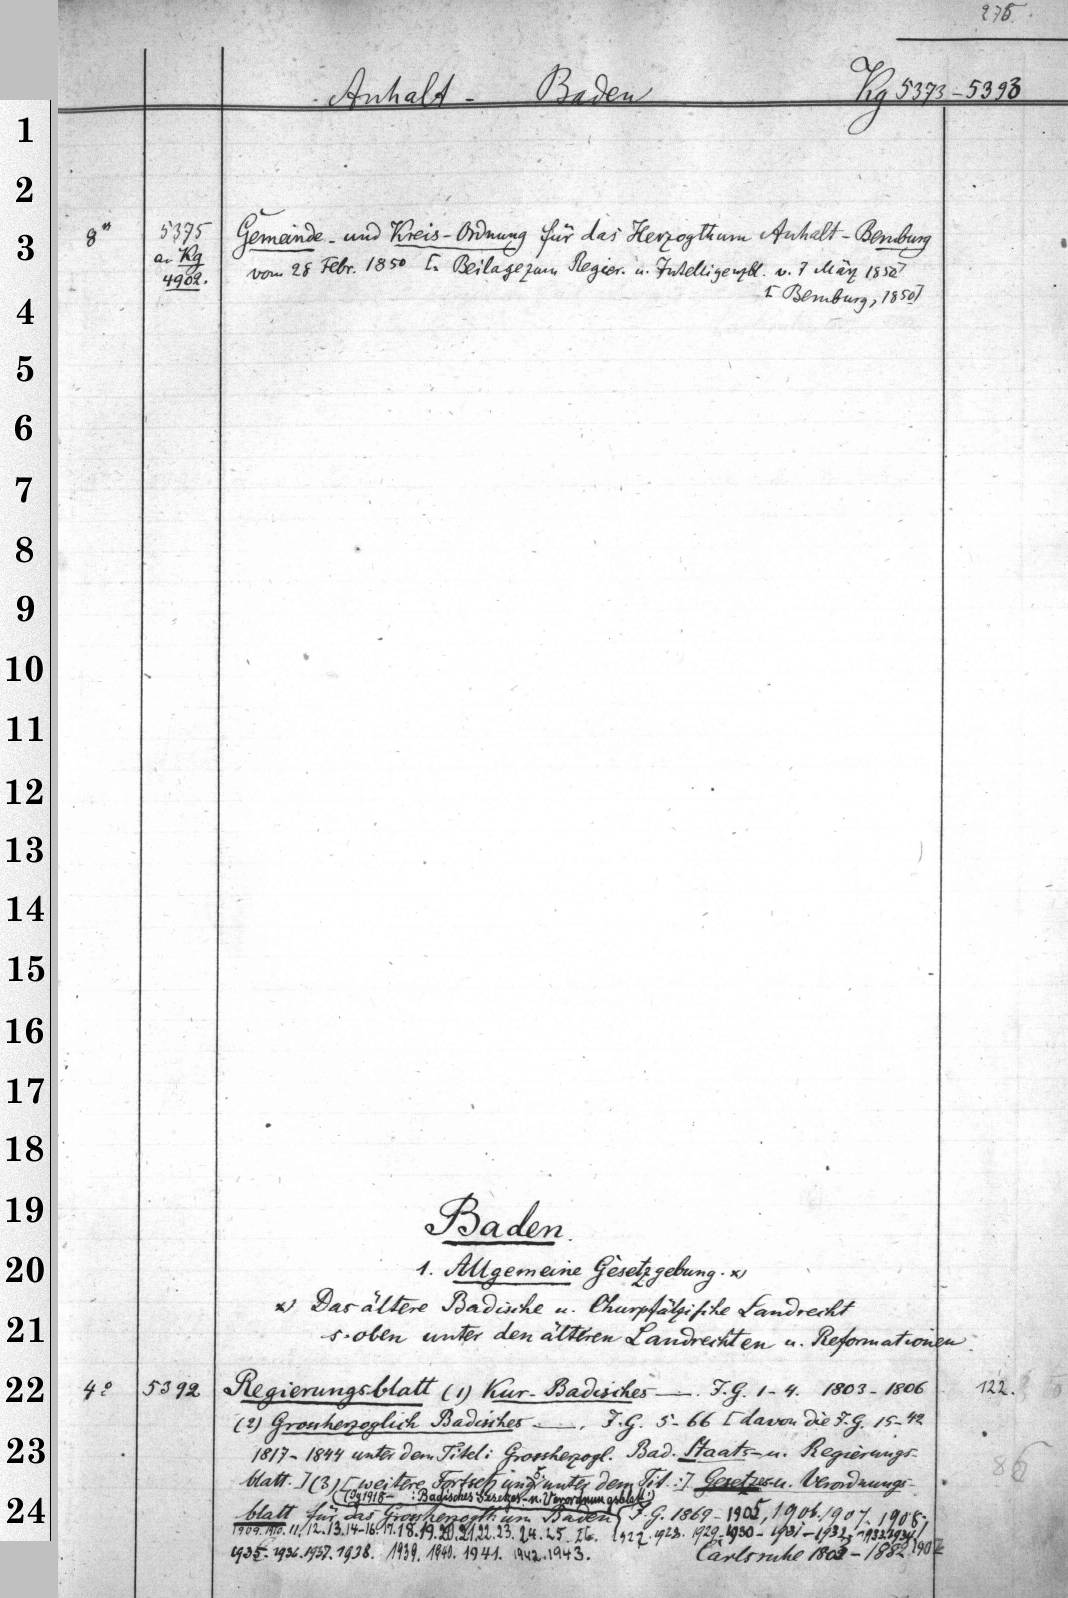 275.
Anhalt - Baden Kg 5373-5393
1
2
3
4
5
6
7
8
9
10
11
12
13
14
15
16
17
18
19
20
21
22
23
24
8° 5375 Gemeinde- und Kreis-Ordnung für das Herzogthum Anhalt-Bernburg
an Kg vom 28 Febr. 1850 [. Beilage zum Regier. u. Intelligenzbl. v. 7 März 1850]
4902. [Bernburg, 1850]
Baden.
1. Allgemeine Gesetzgebung. x)
x) Das ältere Badische u. Churpfälzische Landrecht
s. oben unter den älteren Landrechten u. Reformationen.
4° 5392 Regierungsblatt (1) Kur-Badisches —. J.G. 1-4. 1803-1806 122.
(2) Grossherzoglich Badisches —. J.G. 5-66 [davon die J.G. 15-42
1817-1844 unter dem Titel: Grossherzogl. Bad. Staats- u. Regierungs-
blatt.] (3) [weitere Fortsetzung unter dem Tit.:] Gesetzes- u. Verordnungs-
(Jg 1918- : Badisches Gesetzes- u. Verordnungsblatt)
blatt für das Grossherzogthum Baden J.G. 1869-1905, 1906. 1907. 1908,
1909. 1910. 11, 12. 13. 14-16. 17. 18. 19. 20. 21. 22. 23. 24. 25. 26. 1927 1928. 1929. 1930- 1931- 1932,
1935- 1936. 1937. 1938. 1939. 1940. 1941. 1942. 1943. Carlsruhe 1803-1882